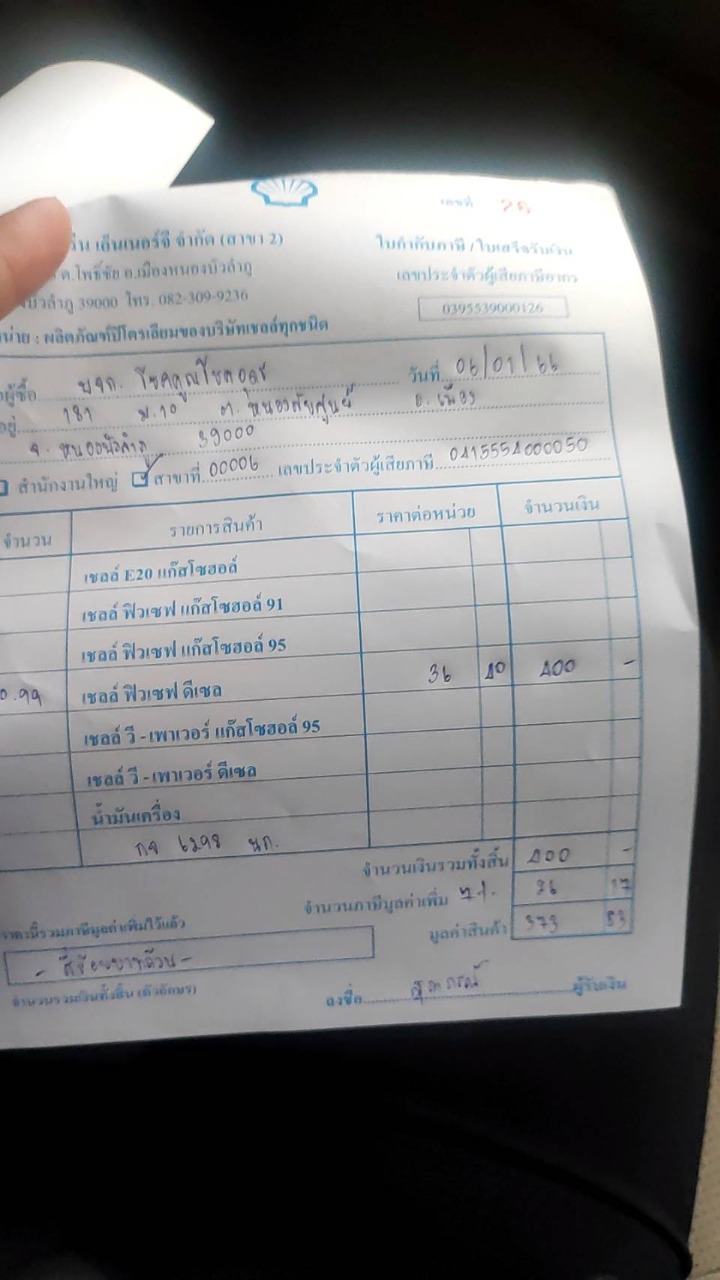 เลขที่ 26
เอ็นเนอร์จี จำกัด (สาขา 2)
ใบกำกับภาษี / ใบเสร็จรับเงิน
ต.โพธิ์ชัย อ.เมืองหนองบัวลำภู
เลขประจำตัวผู้เสียภาษีอากร
บัวลำภู 39000 โทร. 082-309-9236
0395539000126
น่าย : ผลิตภัณฑ์ปิโตรเลียมของบริษัทเชลล์ทุกชนิด
ผู้ซื้อ หจก. โชคคูณโชค วันที่ 06/01/66
อยู่ 181 ม.10 ต. อ. เมือง
จ. หนองบัวลำภู 39000
สำนักงานใหญ่ สาขาที่ 00006 เลขประจำตัวผู้เสียภาษี 0415554000050
จำนวน รายการสินค้า ราคาต่อหน่วย จำนวนเงิน
เชลล์ E20 แก๊สโซฮอล์
เชลล์ ฟิวเซฟ แก๊สโซฮอล์ 91
เชลล์ ฟิวเซฟ แก๊สโซฮอล์ 95
0.99 เชลล์ ฟิวเซฟ ดีเซล 36 40 400 -
เชลล์ วี - เพาเวอร์ แก๊สโซฮอล์ 95
เชลล์ วี - เพาเวอร์ ดีเซล
น้ำมันเครื่อง
6298 นภ.
จำนวนเงินรวมทั้งสิ้น 400 -
จำนวนภาษีมูลค่าเพิ่ม 7% 26 17
ราคานี้รวมภาษีมูลค่าเพิ่มไว้แล้ว
มูลค่าสินค้า 373 83
- สี่ร้อยบาทถ้วน -
จำนวนรวมเงินทั้งสิ้น (ตัวอักษร)
ลงชื่อ ผู้รับเงิน